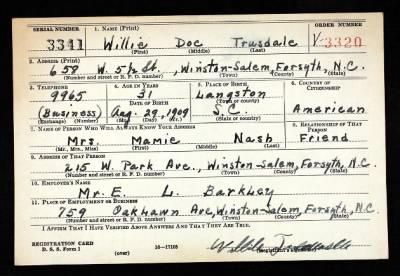 SERIAL NUMBER
1. NAME (Print)
ORDER NUMBER
3341
Willie Doc Trusdale
V-3320
(First) (Middle) (Last)
2. ADDRESS (Print)
658 W. 5th St., Winston-Salem, Forsyth, N.C.
(Number and street or R. F. D. number) (Town) (County) (State)
3. TELEPHONE
4. AGE IN YEARS
5. PLACE OF BIRTH
6. COUNTRY OF CITIZENSHIP
9965
31
Langston
DATE OF BIRTH
(Town or county)
(Business)
Aug. 29, 1909
S.C.
American
(Exchange) (Number)
(Mo.) (Day) (Yr.)
(State or country)
7. NAME OF PERSON WHO WILL ALWAYS KNOW YOUR ADDRESS
8. RELATIONSHIP OF THAT PERSON
Mrs. Mamie Nash
Friend
(Mr., Mrs., Miss) (First) (Middle) (Last)
9. ADDRESS OF THAT PERSON
215 W. Park Ave., Winston-Salem, Forsyth, N.C.
(Number and street or R. F. D. number) (Town) (County) (State)
10. EMPLOYER'S NAME
Mr. E. L. Barkley
11. PLACE OF EMPLOYMENT OR BUSINESS
759 Oaklawn Ave, Winston-Salem, Forsyth, N.C.
(Number and street or R. F. D. number) (Town) (County) (State)
I AFFIRM THAT I HAVE VERIFIED ABOVE ANSWERS AND THAT THEY ARE TRUE.
REGISTRATION CARD
D. S. S. Form 1
16-17105
(over)
Willie
(Registrant's signature)